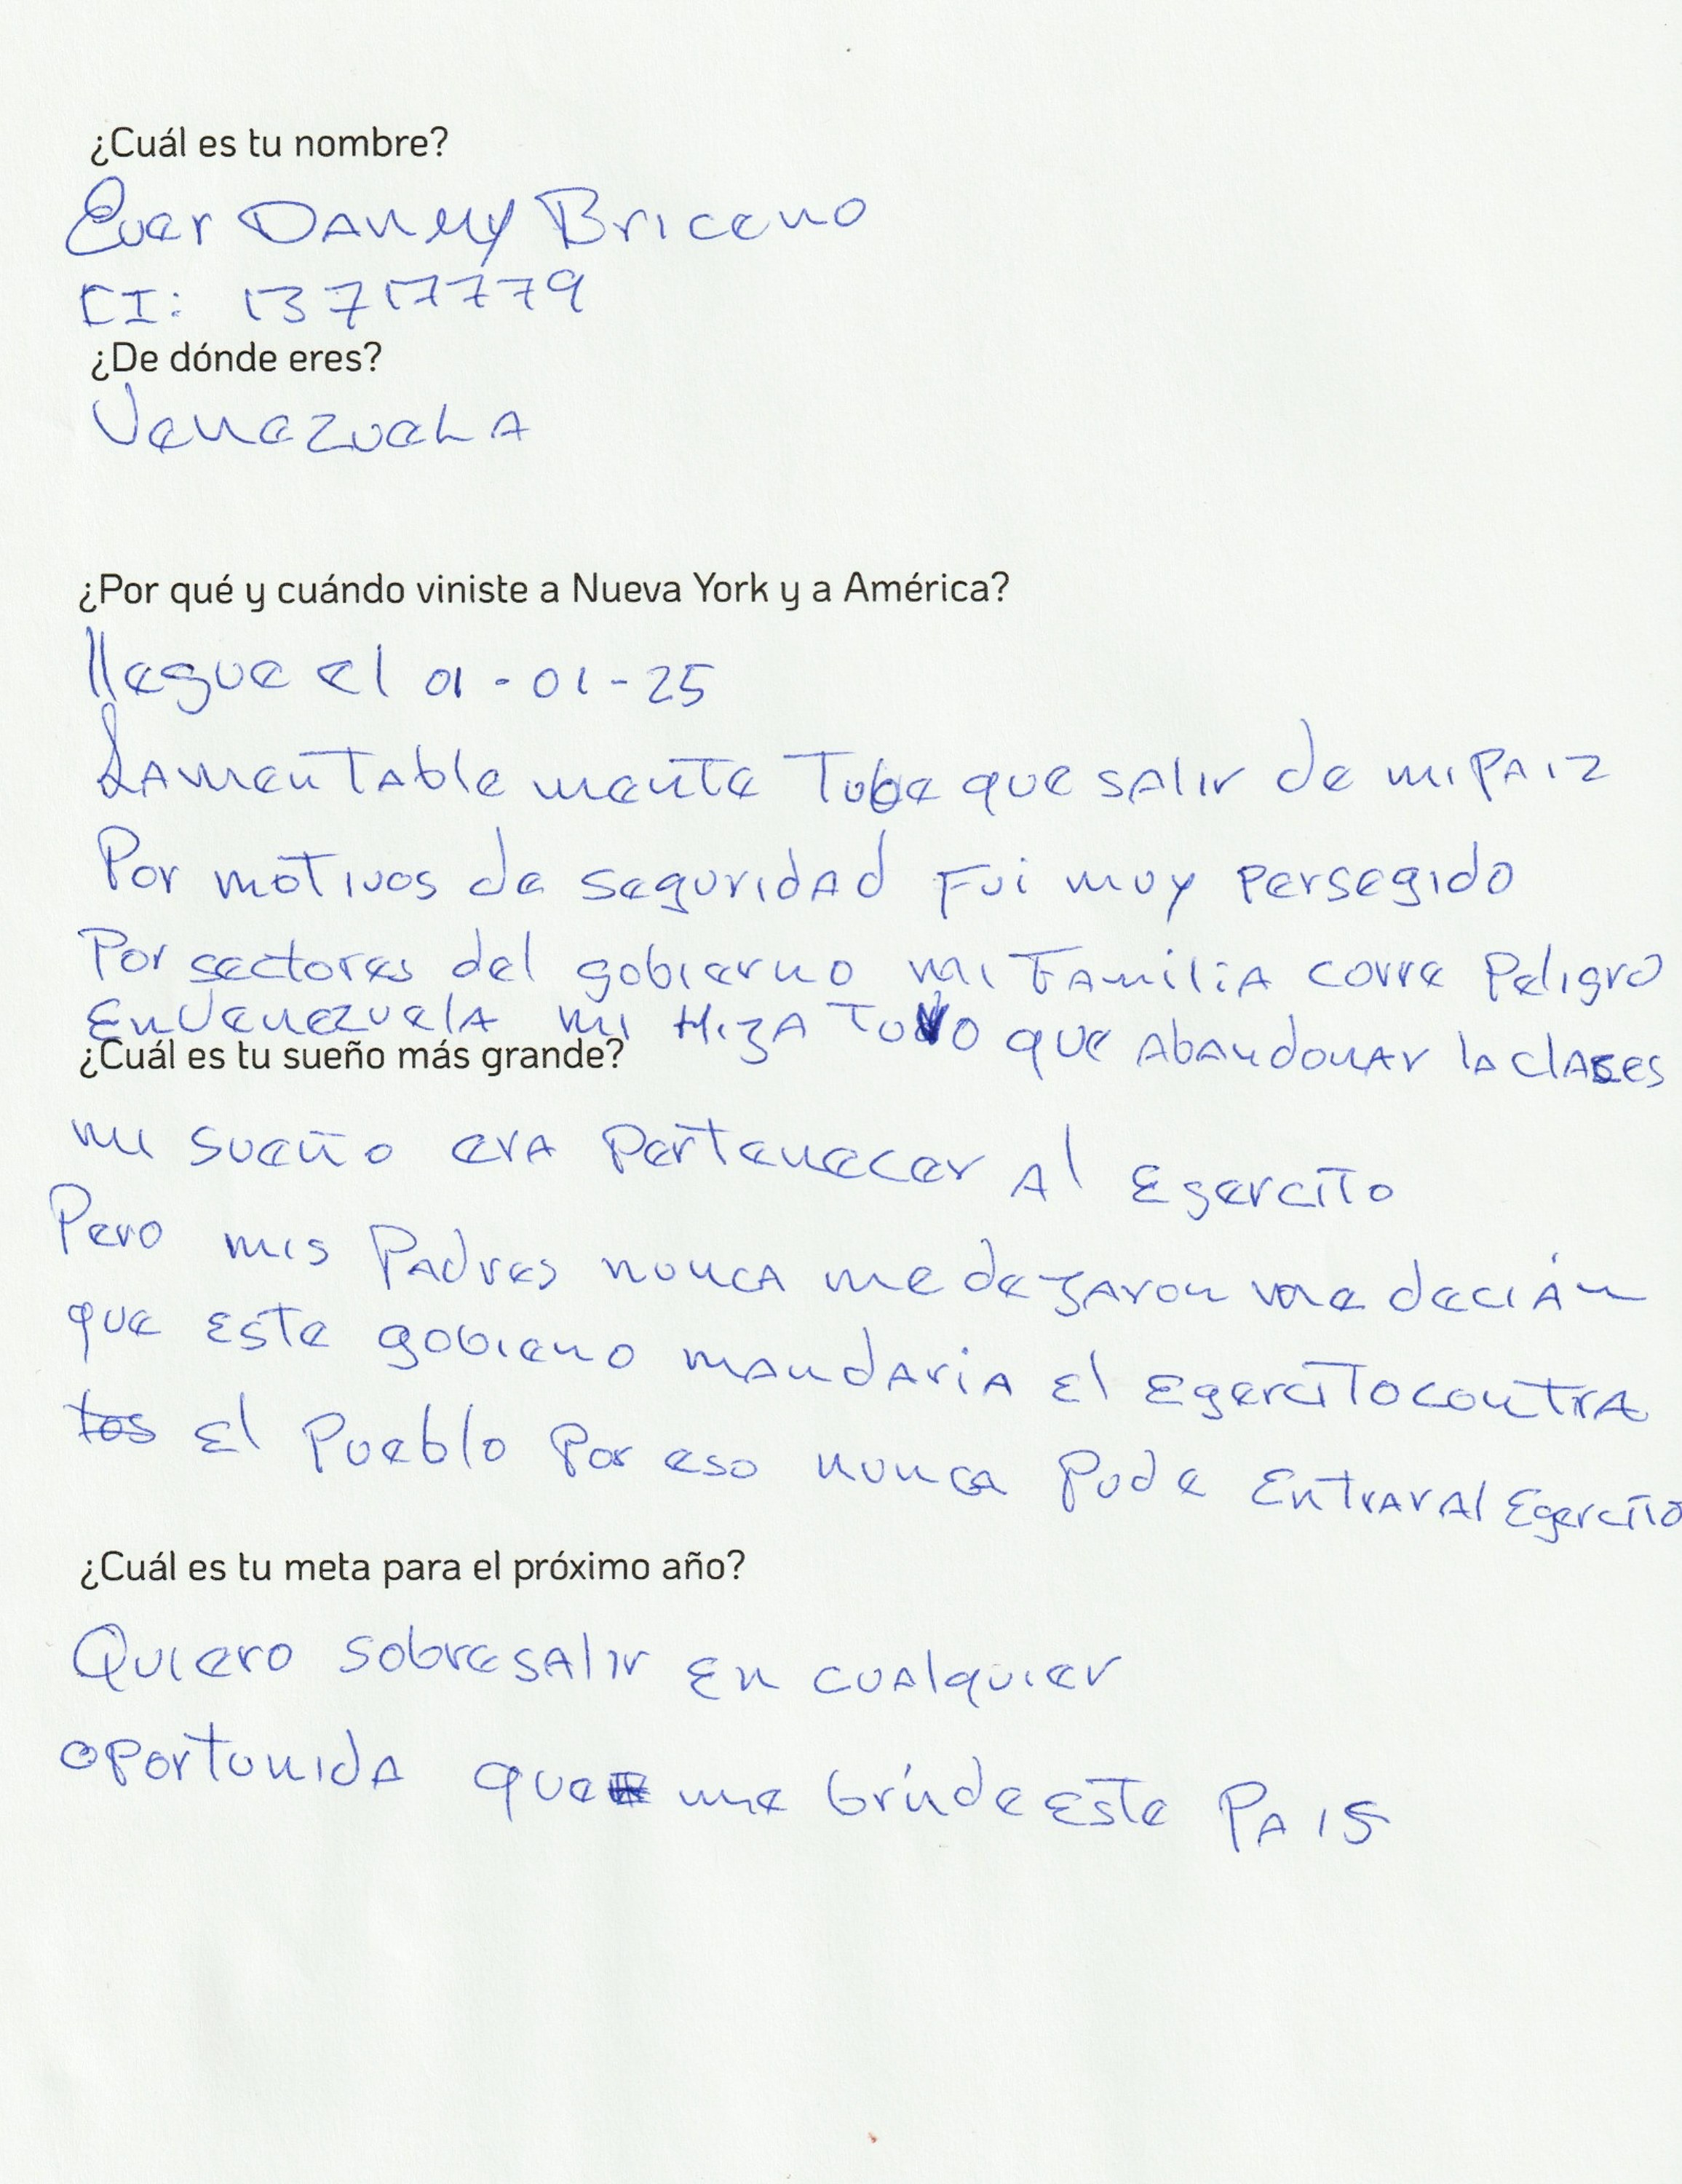 ¿Cuál es tu nombre?
Ever DANNY Briceno
CI: 13717779
¿De dónde eres?
VenezueLA
¿Por qué y cuándo viniste a Nueva York y a América?
llegue el 01-01-25
LAmenTAble mente Tube que sAlir de mi PAIZ
Por moTivos de seguridAd Fui muy Persegido
Por sectores del gobierno mi FAmiliA corre Peligro
En VenezuelA mi HizA Tuvo que AbAndonAr lA clAses
¿Cuál es tu sueño más grande?
mi sueño erA PerTenecer Al EgerciTo
Pero mis PAdres nuncA me dejAron me deciÁn
que EsTe gobieno mAndAriA El EgerciTo conTrA
los El Pueblo Por eso nuncA Pude EnTrAr Al EgerciTo
¿Cuál es tu meta para el próximo año?
Quiero sobresAlir En cuAlquier
oPorTunidA que me brinde EsTe PAIS